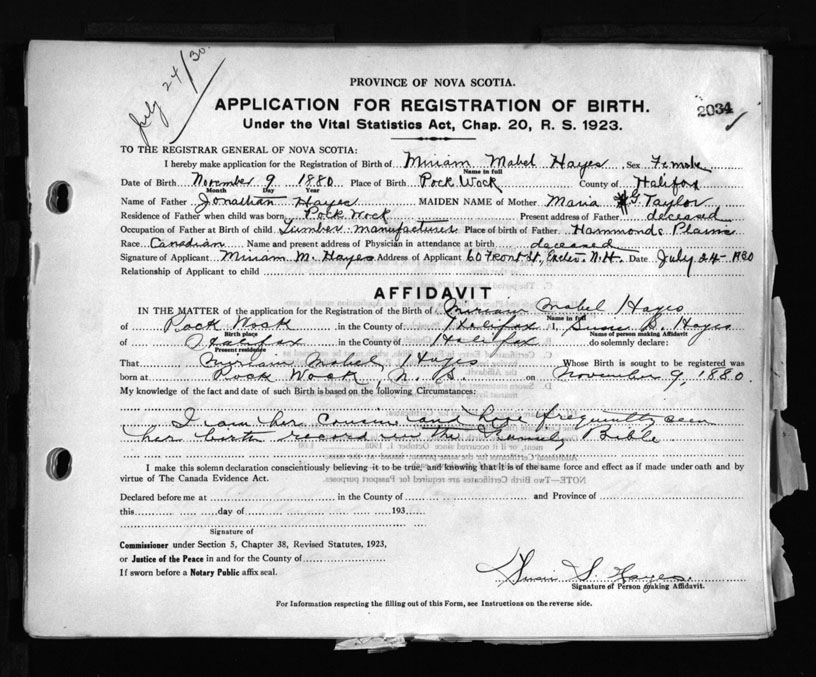 July 24/30
PROVINCE OF NOVA SCOTIA.
APPLICATION FOR REGISTRATION OF BIRTH. 2034
Under the Vital Statistics Act, Chap. 20, R. S. 1923.
TO THE REGISTRAR GENERAL OF NOVA SCOTIA:
I hereby make application for the Registration of Birth of Miriam Mabel Hayes Sex Female
Name in full
Date of Birth November 9 1880 Place of Birth Pock Wock County of Halifax
Month Day Year
Name of Father Jonathan Hayes MAIDEN NAME of Mother Maria G. Taylor
Residence of Father when child was born Pock Wock Present address of Father deceased
Occupation of Father at Birth of child Lumber manufacturer Place of birth of Father Hammonds Plains
Race Canadian Name and present address of Physician in attendance at birth deceased
Signature of Applicant Miriam M. Hayes Address of Applicant 60 Front St., Exeter N.H. Date July 24- 1930
Relationship of Applicant to child
AFFIDAVIT
IN THE MATTER of the application for the Registration of the Birth of Miriam Mabel Hayes
Name in full
of Pock Wock in the County of Halifax I, Susie B. Hayes
Birth place Name of person making Affidavit
of Halifax in the County of Halifax do solemnly declare:
Present residence
That Miriam Mabel Hayes Whose Birth is sought to be registered was
born at Pock Wock, N. S. on November 9, 1880.
My knowledge of the fact and date of such Birth is based on the following Circumstances:
I am her cousin and have frequently seen
her birth record in the Family Bible
I make this solemn declaration conscientiously believing it to be true, and knowing that it is of the same force and effect as if made under oath and by
virtue of The Canada Evidence Act.
NOTE—Two Birth Certificates are required for Passport purposes.
Declared before me at in the County of and Province of
this day of 193
Signature of
Commissioner under Section 5, Chapter 38, Revised Statutes, 1923,
or Justice of the Peace in and for the County of
If sworn before a Notary Public affix seal.
Hayes
Signature of Person making Affidavit.
For Information respecting the filling out of this Form, see Instructions on the reverse side.